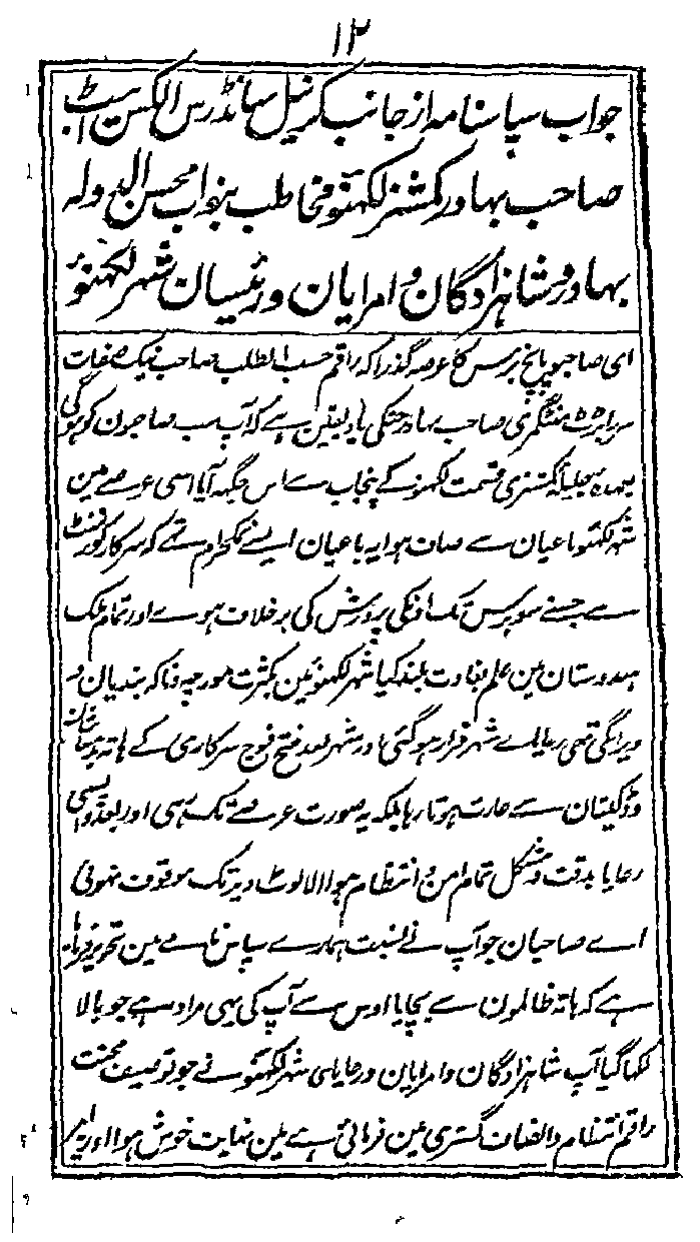 ۱۲
جواب سپاسنامہ از جانب کرنیل سانڈرس الکسن ایبٹ
صاحب بہادر کمشنر لکھنؤ مخاطب بنواب محسن الدولہ
بہادر و شاہزادگان و امرایان و رئیسان شہر لکھنؤ
ای صاحبو پانچ برس کا عرصہ گذرا کہ راقم حسب الطلب صاحب نیک صفات
سر رابرٹ منٹگمری صاحب بہادر جنکی یاد یقین ہے کہ آپ سب صاحبون کو ہوگی
بعہدہ جلیلہ کمشنری قسمت لکھنؤ کے پنجاب سے اس جگہہ آیا اسی عرصے مین
شہر لکھنؤ باغیان سے صاف ہوا یہ باغیان ایسے نمکحرام تھے کہ سرکار گورنمنٹ
سے جسنے سو برس تک اونکی پرورش کی برخلاف ہوے اور تمام ملک
ہندوستان مین علم بغاوت بلند کیا شہر لکھنؤ مین بکثرت مورچہ و ناکہ بندیان و
ویرانگی تھی رعایاے شہر فرار ہو گئی اور شہر بعد فتح فوج سرکاری کے ہاتھ
و ڈکیتان سے غارت ہوتا رہا بلکہ یہ صورت عرصے تک رہی اور بعد واپسی
رعایا بدقت و مشکل تمام امن و انتظام ہوا الا لوٹ دیر تک موقوف نہوئی
اے صاحبان جو آپ نے نسبت ہمارے سپاس نامے مین تحریر فرمایا
ہے کہ ہاتھ ظالمون سے بچایا اوس سے آپ کی یہی مراد ہے جو بالا
لکھا گیا آپ شاہزادگان و امرایان و رعایای شہر لکھنؤ نے جو توصیف محنت
راقم انتظام و انصاف گستری مین فرمائی ہے مین نہایت خوش ہوا اور